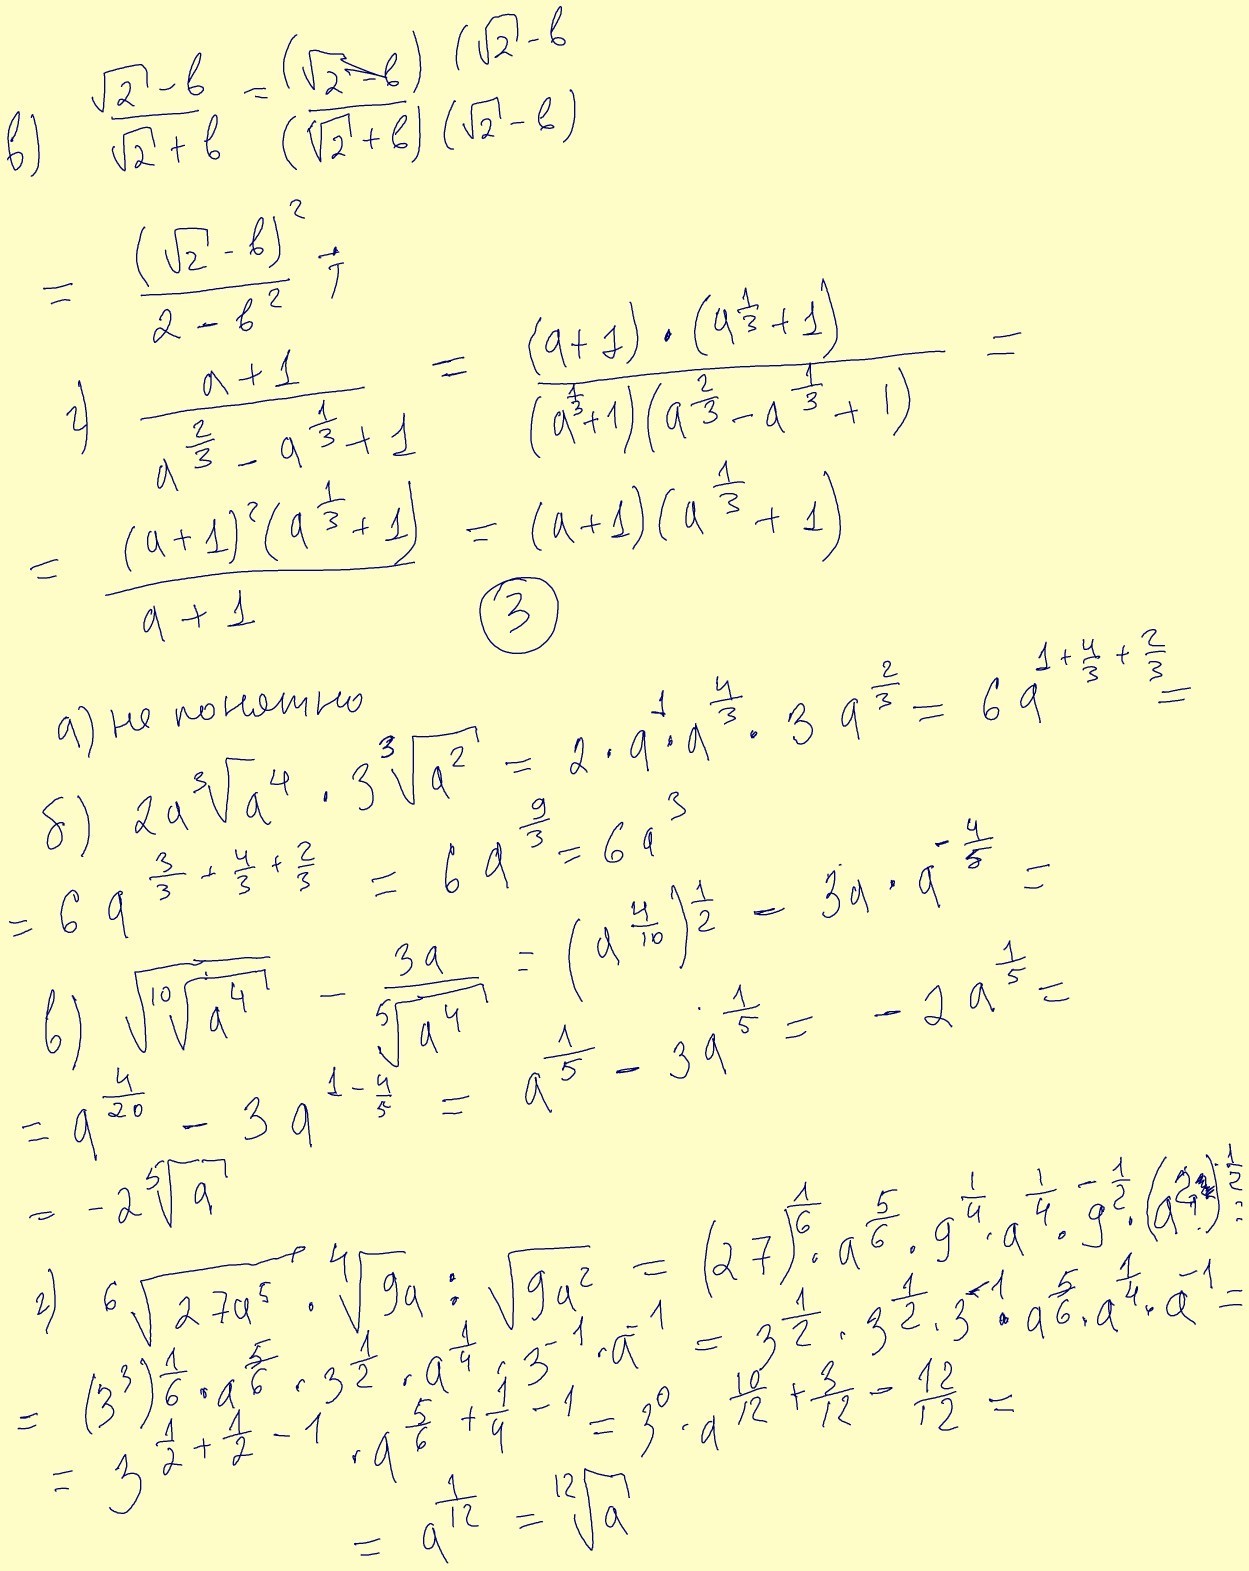 в) (√2 - b)/(√2 + b) = (√2 - b)(√2 - b / (√2 + b)(√2 - b)
= (√2 - b)²/(2 - b²) ;
г) (a + 1)/(a^(2/3) - a^(1/3) + 1) = (a + 1) · (a^(1/3) + 1) / (a^(1/3) + 1)(a^(2/3) - a^(1/3) + 1) =
= (a + 1)²(a^(1/3) + 1)/(a + 1) = (a + 1)(a^(1/3) + 1)
3
а) не понятно
б) 2a ∛a⁴ · 3 ∛a² = 2 · a¹ · a^(4/3) · 3 a^(2/3) = 6 a^(1 + 4/3 + 2/3) =
= 6 a^(3/3 + 4/3 + 2/3) = 6 a^(9/3) = 6a³
в) √(¹⁰√a⁴) - 3a/⁵√a⁴ = (a^(4/10))^(1/2) - 3a · a^(-4/5) =
= a^(4/20) - 3 a^(1 - 4/5) = a^(1/5) - 3a^(1/5) = - 2 a^(1/5) =
= -2 ⁵√a
г) ⁶√27a⁵ · ⁴√9a : √9a² = (27)^(1/6) · a^(5/6) · 9^(1/4) · a^(1/4) · 9^(-1/2) · (a^2)^(-1/2) =
= (3³)^(1/6) · a^(5/6) · 3^(1/2) · a^(1/4) · 3^(-1) · a^(-1) = 3^(1/2) · 3^(1/2) · 3^(-1) · a^(5/6) · a^(1/4) · a^(-1) =
= 3^(1/2 + 1/2 - 1) · a^(5/6 + 1/4 - 1) = 3⁰ · a^(10/12 + 3/12 - 12/12) =
= a^(1/12) = ¹²√a